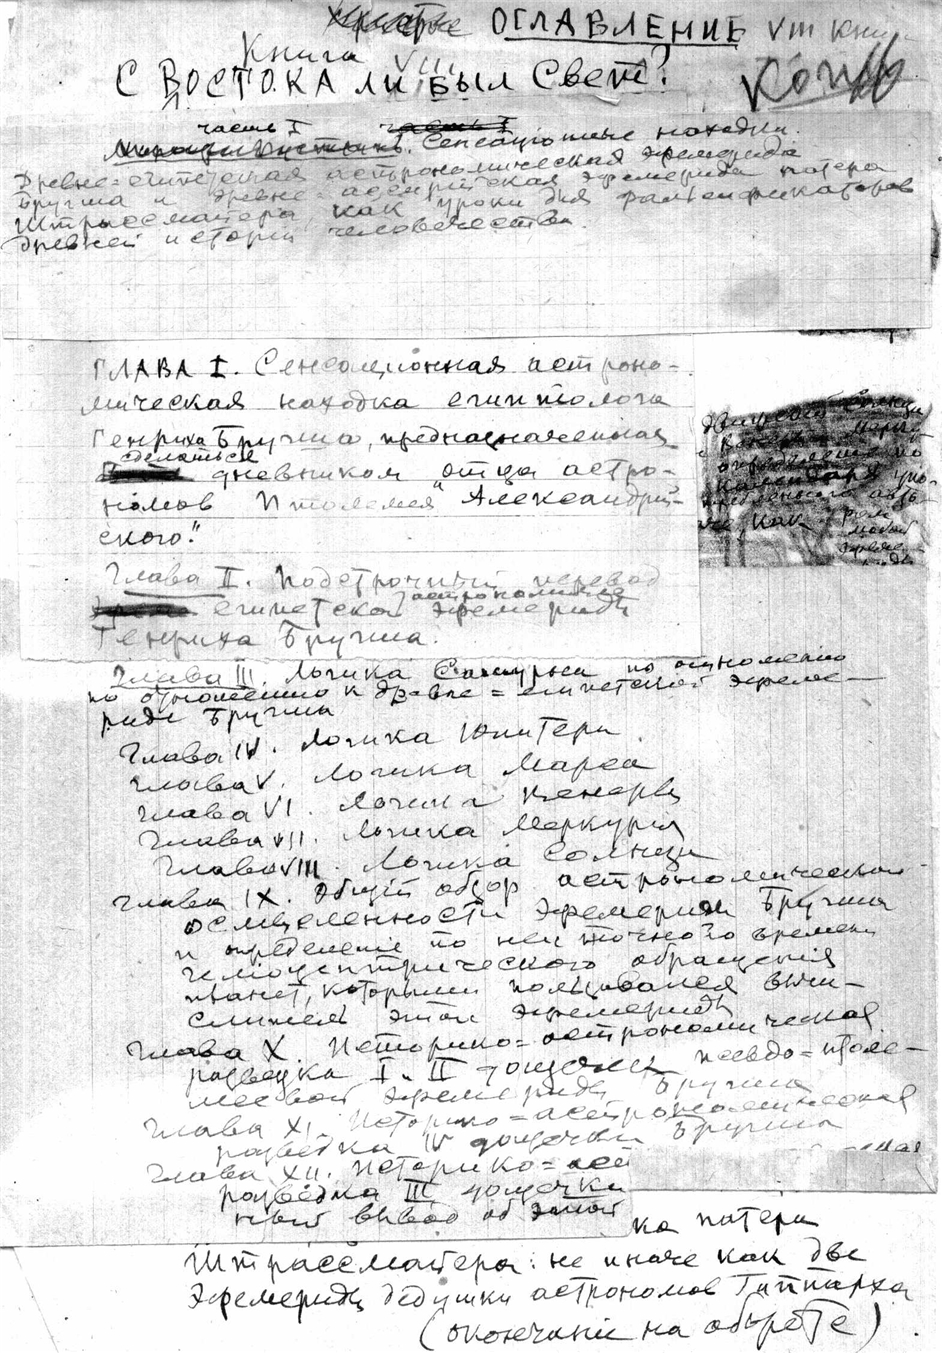 ОГЛАВЛЕНИЕ VIII Кни
Книга VIII
С ВОСТОКА ЛИ БЫЛ СВЕТ?
часть I часть I
Сенсационные находки.
Древне=египетская астрономическая эфемерида
Бругша и древне ассирийская эфемерида патера
Штрассмайера, как уроки для фальсификаторов
древней истории человечества.
ГЛАВА I. Сенсаціонная астроно-
мическая находка египтолога
Генриха Бругша, предназначенная
сделаться
дневником отца астро-
номов Птолемея "Александрій-
ского".
Глава II. Подстрочный перевод
астрономической
египетской эфемериды
Генриха Бругша.
Глава III. Логика Сатурна по отношению
по отношению к древне=египетской эфеме-
риде Бругша
Глава IV. Логика Юпитера.
Глава V. Логика Марса
Глава VI. Логика Венеры
Глава VII. Логика Меркурія
Глава VIII. Логика Солнца
Глава IX. Общій обзор астрономической
осмысленности эфемериды Бругша
и определеніе по ней точного времени
геліоцентрического обращенія
планет, которыми пользовался вычи-
слитель этой эфемериды
Глава X. Историко=астрономическая
разведка I. II дощечек псевдо=птоле-
меевой эфемериды Бругша
Глава XI. Историко=астрономическая
разведка IV дощечки Бругша
Глава XII. Историко=аст
разведка III дощечки
ный вывод об этой
ка патера
Штрассмайера: не иначе как две
эфемериды дедушки астрономов Гиппарха
(окончаніе на обороте).